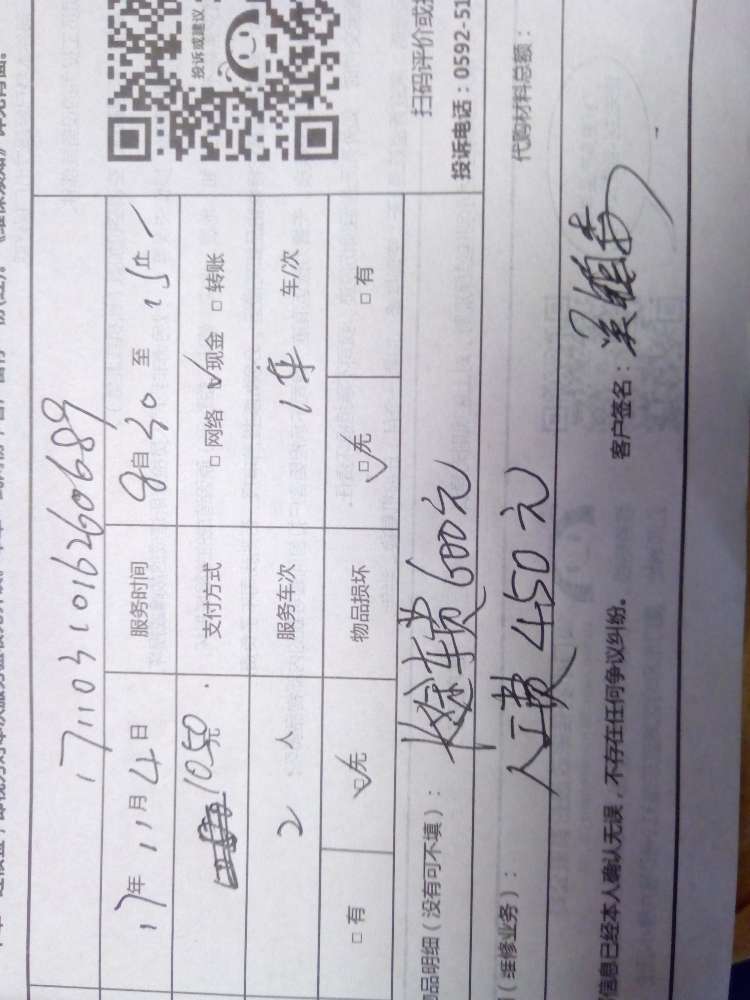 投诉或建议
1711031016260689
17年11月4日 服务时间 自8 30至15止
1050元 支付方式 □网络 ☑现金 □转账
2人 服务车次 1车 车/次
□有 ☑无 物品损坏 ☑无 □有
扫码评价或
品明细（没有可不填）：长途车费600元 投诉电话：0592-51
（维修业务）：人工费450元 代购材料总额：
信息已经本人确认无误，不存在任何争议纠纷。 客户签名：